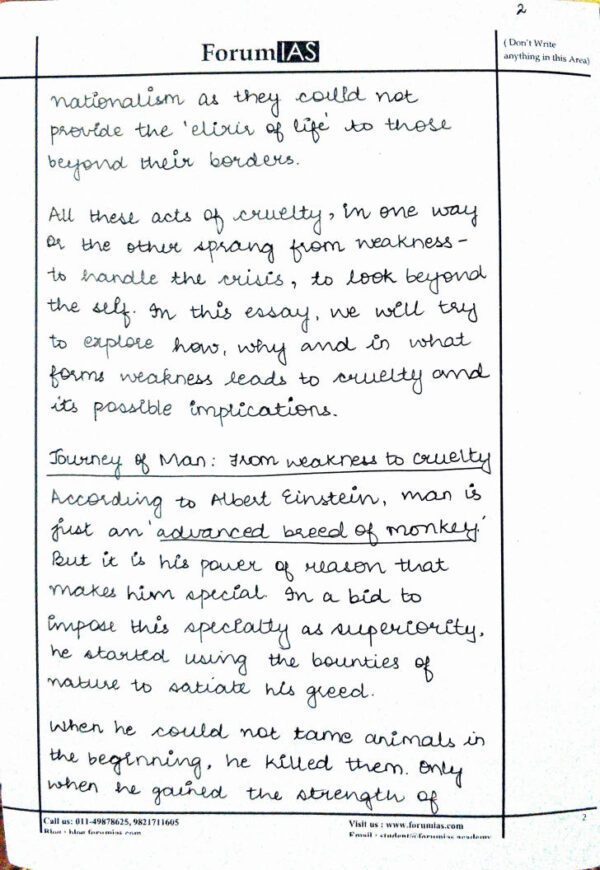 2
ForumIAS
( Don't Write
anything in this Area)
nationalism as they could not
provide the 'elixir of life' to those
beyond their borders.
All these acts of cruelty, in one way
or the other sprang from weakness -
to handle the crisis, to look beyond
the self. In this essay, we will try
to explore how, why and in what
forms weakness leads to cruelty and
its possible implications.
Journey of Man: From weakness to cruelty
According to Albert Einstein, man is
just an 'advanced breed of monkey.'
But it is his power of reason that
makes him special. In a bid to
impose this specialty as superiority,
he started using the bounties of
nature to satiate his greed.
When he could not tame animals in
the beginning, he killed them. Only
when he gained the strength of
2
Call us: 011-49878625, 9821711605
Visit us : www.forumias.com
Blog : blog.forumias.com
Email : student@forumias.academy